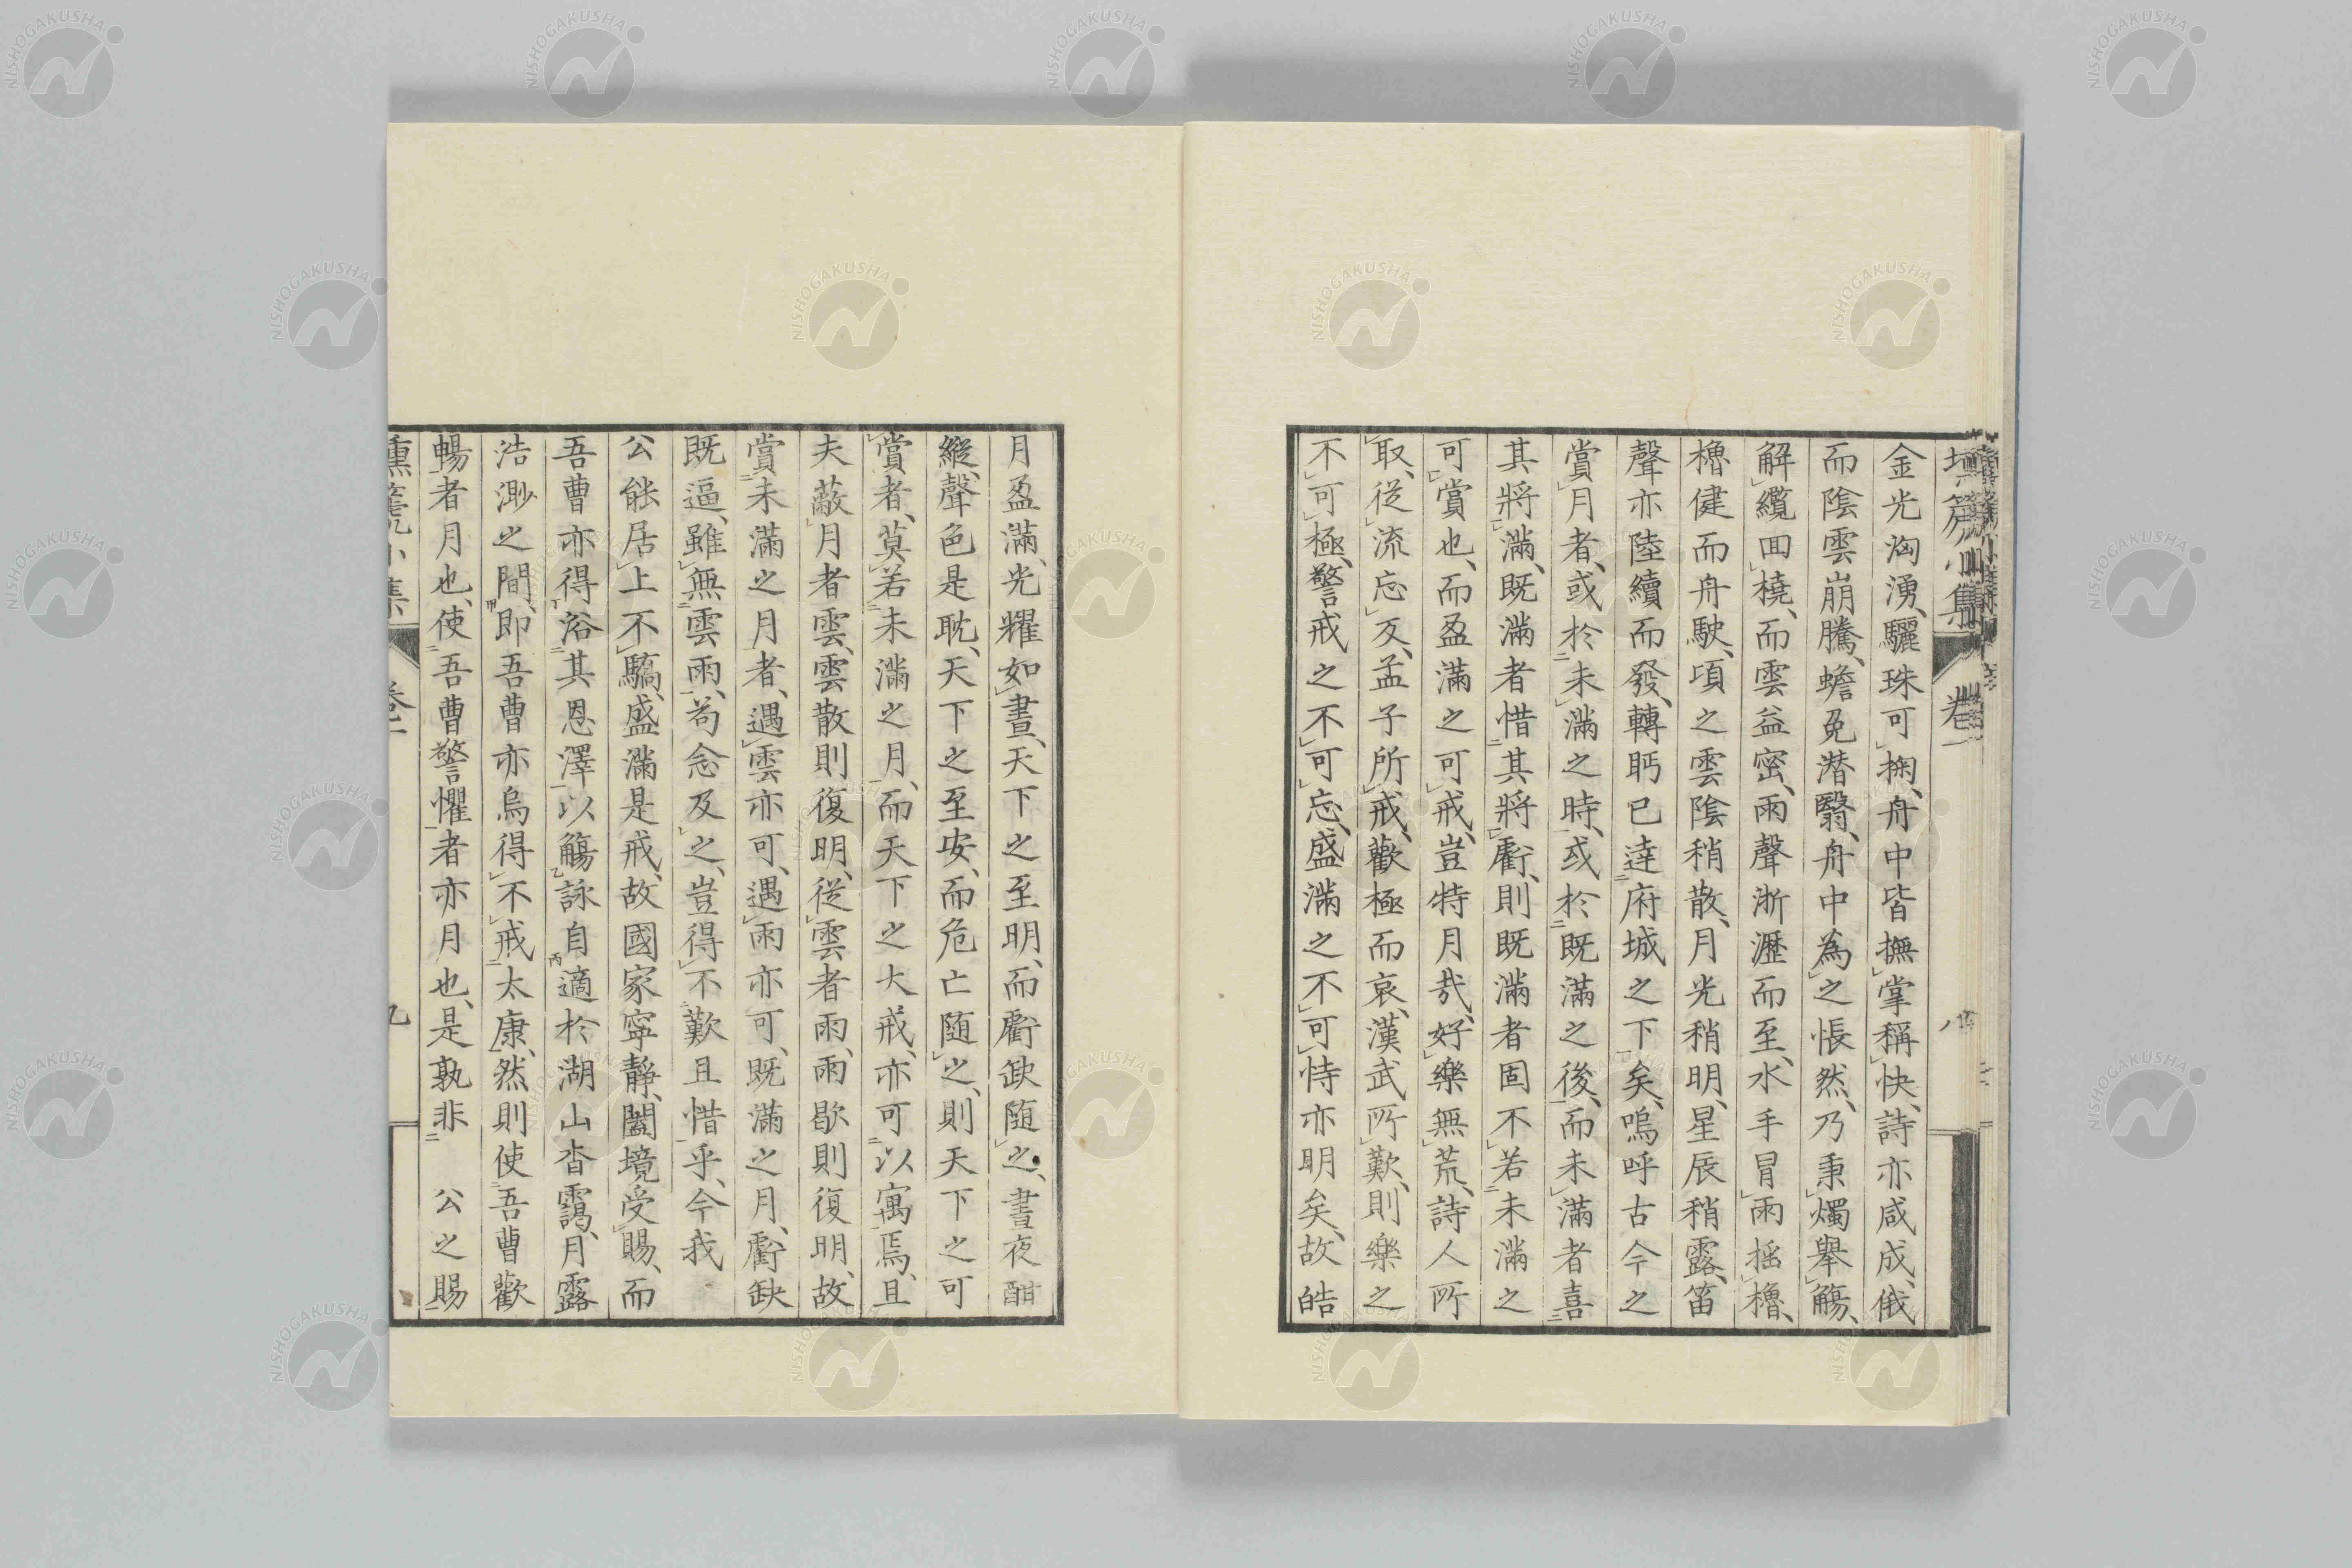 金光洶湧、驪珠可掬、舟中皆撫掌稱快、詩亦咸成、俄
而陰雲崩騰、蟾兔潛翳、舟中為之悵然、乃秉燭舉觴、
解纜回橈、而雲益密、雨聲淅瀝而至、水手冒雨搖櫓、
櫓健而舟駛、頃之雲陰稍散、月光稍明、星辰稍露、笛
聲亦陸續而發、轉眄已達府城之下矣、嗚呼古今之
賞月者、或於未滿之時、或於既滿之後、而未滿者喜
其將滿、既滿者惜其將虧、則既滿者固不若未滿之
可賞也、而盈滿之可戒、豈特月哉、好樂無荒、詩人所
取、從流忘反、孟子所戒、歡極而哀、漢武所歎、則樂之
不可極、警戒之不可忘、盛滿之不可恃亦明矣、故皓
月盈滿、光耀如晝、天下之至明、而虧缺随之、晝夜酣
縱、聲色是耽、天下之至安、而危亡随之、則天下之可
賞者、莫若未滿之月、而天下之大戒、亦可以寓焉、且
夫蔽月者雲、雲散則復明、從雲者雨、雨歇則復明、故
賞未滿之月者、遇雲亦可、遇雨亦可、既滿之月、虧缺
既逼、雖無雲雨、苟念及之、豈得不歎且惜乎、今我
公能居上不驕、盛滿是戒、故國家寧靜、闔境受賜、而
吾曹亦得浴其恩澤以觴詠自適於湖山杳靄、月露
浩渺之間、即吾曹亦烏得不戒太康、然則使吾曹歡
暢者月也、使吾曹警懼者亦月也、是孰非　公之賜